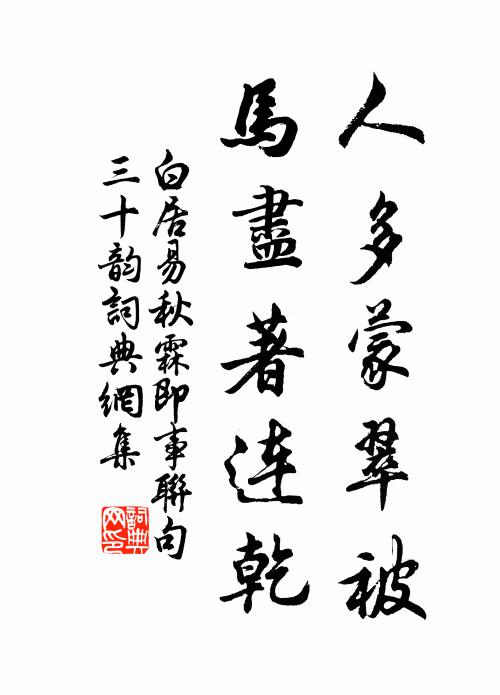 人多蒙翠被
馬盡著連乾
白居易秋霖即事聯句
三十韵詞典網集
詞典网印